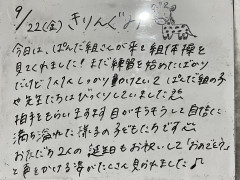 9/22(金) きりんぐみ
今日は、ぱんだ組さんが来て組体操を
見てくれました! まだ練習を始めたばかり
だけど1人1人しっかり動けていて ぱんだ組の子
や先生たちはびっくりしていました
拍手をもらいますます目がキラキラして自信に
満ち溢れた 子どもたちです
おたんじょう 人の 誕生日もお祝いして「おめでとう」
と声をかける姿がたくさん見られました♪